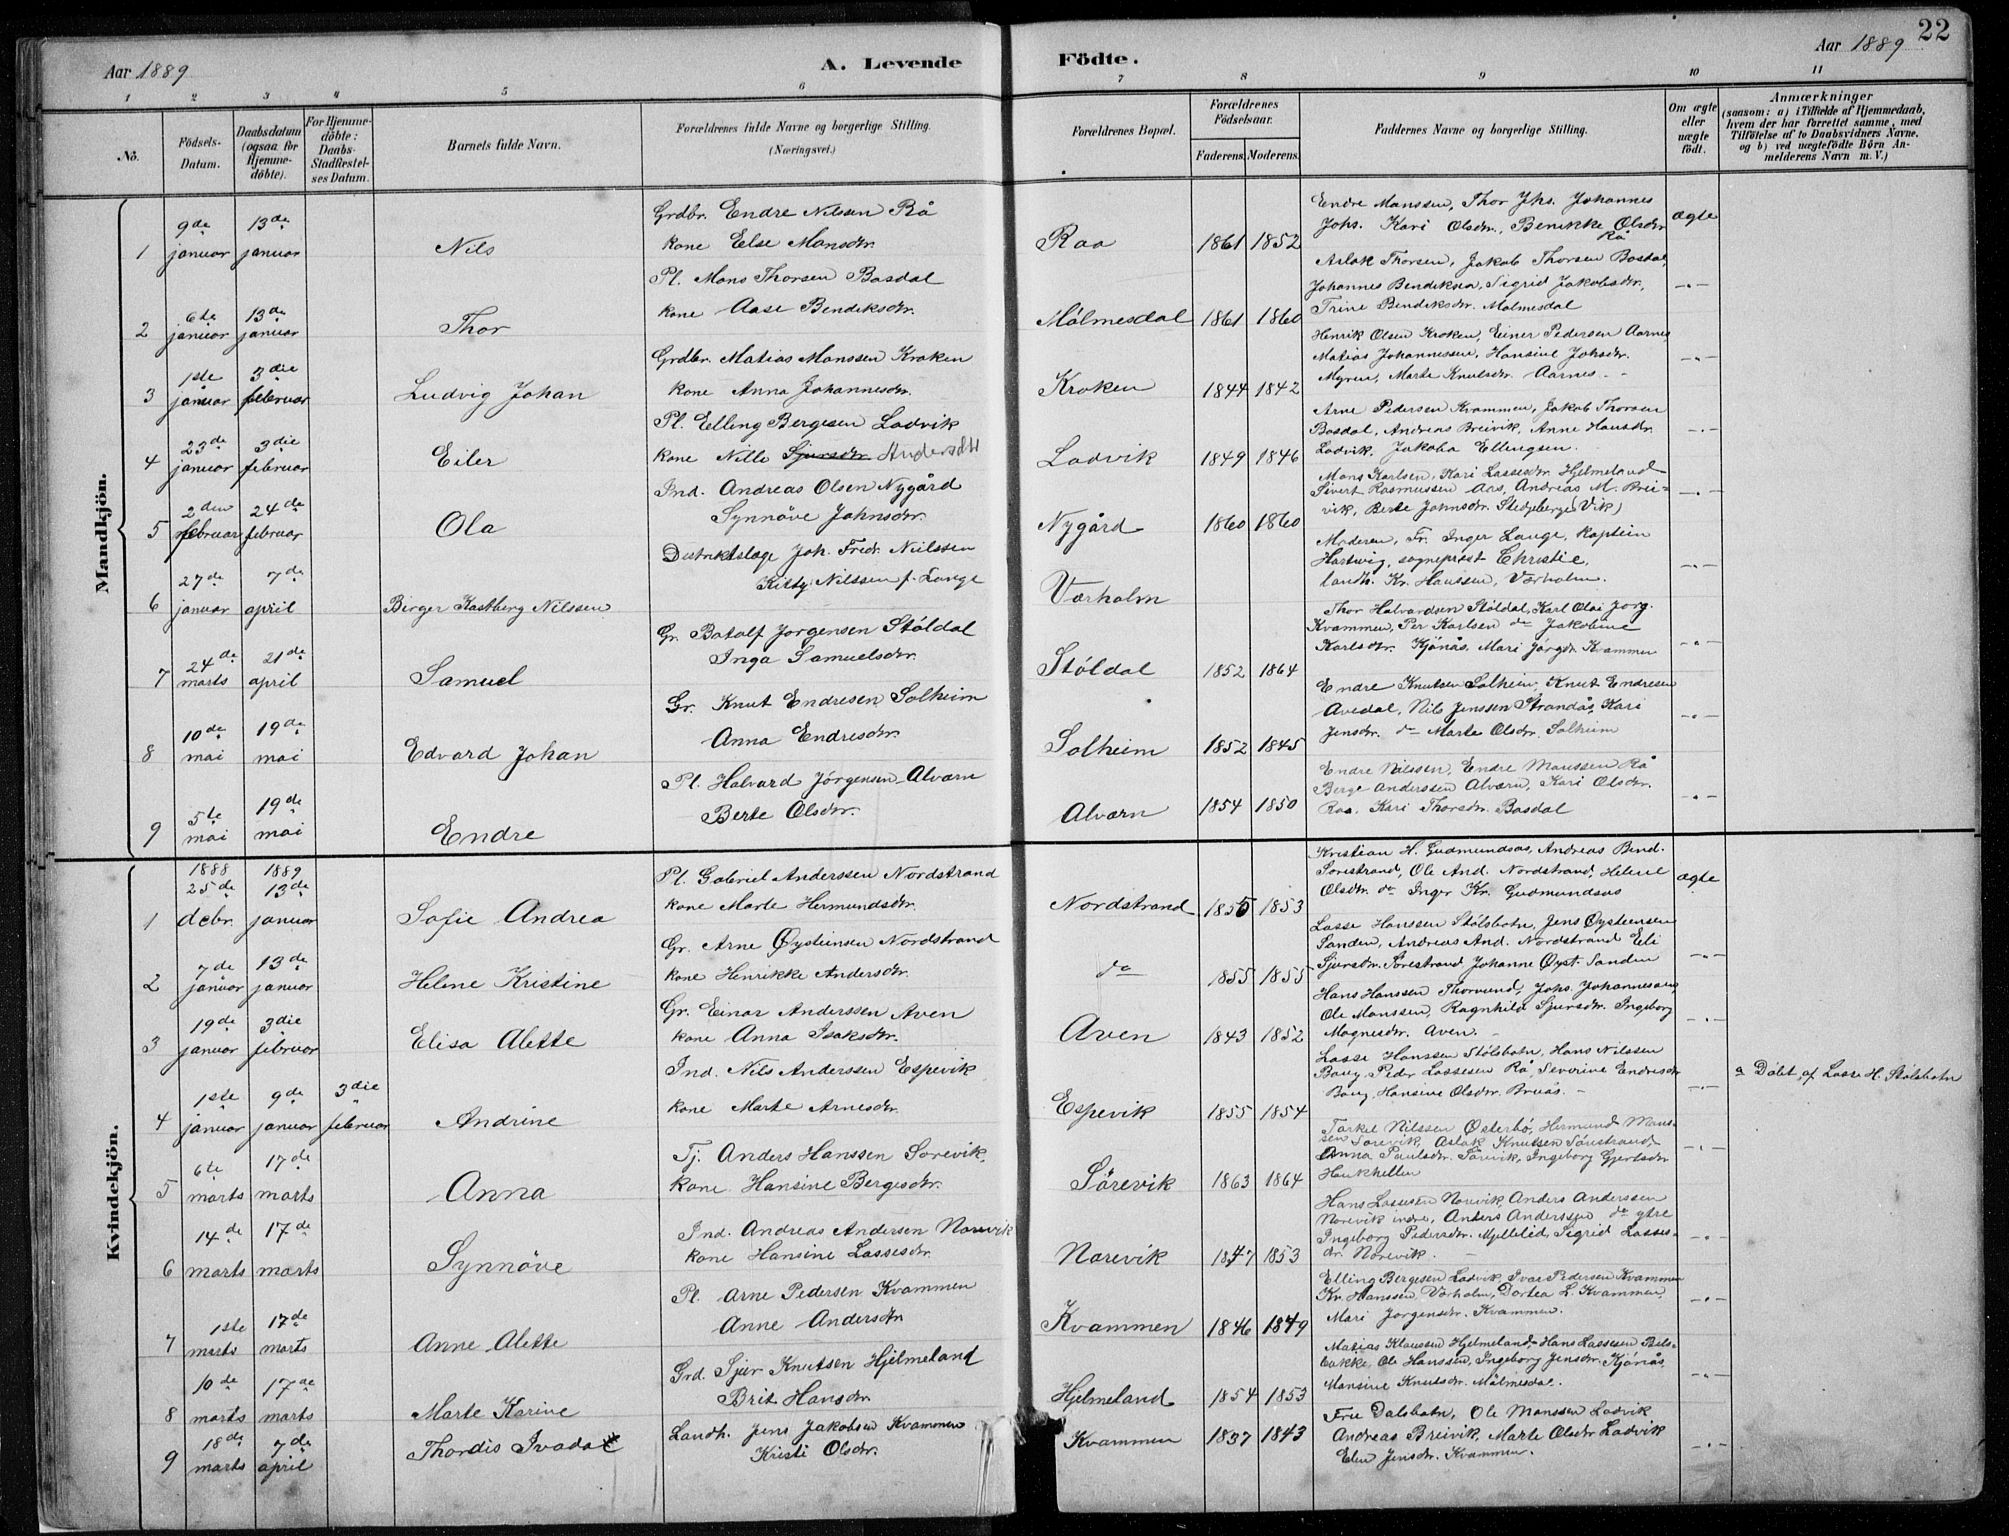 22
Aar 1889 A. Levende Födte. Aar 1889
1 2 3 4 5 6 7 8 9 10 11
No. Födsels-Datum. Daabsdatum (ogsaa for Hjemmedöbte). For Hjemmedöbte: Daabs-Stadfæstelses Datum. Barnets fulde Navn. Forældrenes fulde Navne og borgerlige Stilling. (Næringsvei.) Forældrenes Bopæl. Forældrenes Födselsaar. Faderens. Moderens. Faddernes Navne og borgerlige Stilling. Om ægte eller uægte födt. Anmærkninger (saasom: a) i Tilfælde af Hjemmedaab, hvem der har forrettet samme, med Tilföielse af to Daabsvidners Navne, og b) ved uægtefödte Börn Anmelderens Navn m. V.)
Mandkjön.
1 9de januar 13de januar Nils Grdbr. Endre Nilsen Rå kone Else Mansdtr. Raa 1861 1852 Endre Manssen, Thor Jhs. Johannes Johs. Kari Olsdtr., Benikke Olsdtr Rå ægte
2 6te januar 13de januar Thor Pl. Mons Thorsen Basdal kone Aase Bendiksdtr. Målmesdal 1861 1860 Aslak Thorsen, Jakob Thorsen Bosdal, Johannes Bendiksen, Sigrid Jakobsdtr, Trine Bendiksdtr. Målmesdal -"-
3 1ste januar 3die februar Ludvig Johan Grdbr. Matias Monssen Kroken kone Anna Johannesdtr. Kroken 1844 1842 Henrik Olsen Kroken, Einer Pedersen Aarnes Matias Johannessen, Hansine Johsdtr. Myren, Marte Knutsdtr. Aarnes -"-
4 23de januar 3die februar Eiler Pl. Elling Bergesen Ladvik kone Nille Sjursdtr Andersdtt Ladvik 1849 1846 Arne Pedersen Kvammen, Jakob Thorsen Basdal, Andreas Breivik, Anne Hansdtr. Ladvik, Jakoba Ellingsen. -"-
5 2den februar 24de februar Ola Ind. Andreas Olsen Nygård Synnöve Johnsdtr. Nygård 1860 1860 Mons Karlsen, Kari Lassesdtr. Hjelmeland Sivert Rasmussen Aas, Andreas M. Breivik, Berte Johnsdtr. Stedjeberge (Vik) -"-
6 27de januar 7de april Birger Kastberg Nilssen Distriktslæge Joh. Fredr. Nilssen Kitty Nilssen f. Lange Værholm Moderen, Fr. Inger Lange, Kaptein Hartwig, sogneprest Christie, landh. Kr. Hanssen, Værholm. -"-
7 24de marts 21de april Samuel Gr. Batolf Jørgensen Ståldal Inga Samuelsdtr. Ståldal 1852 1864 Thor Halvardsen Ståldal, Karl Olai Jørg. Kvammen, Per Karlsen do Jakobine Karlsdtr. Kjönås, Mari Jørgdr Kvammen -"-
8 10de mai 19de mai Edvard Johan Gr. Knut Endresen Solheim Anna Endresdtr. Solheim 1852 1845 Endre Knutsen Solheim, Knut Endresen Avedal, Nils Jenssen Strandås, Kari Jensdr. do Marte Olsdr. Solheim -"-
9 5te mai 19de mai Endre Pl. Halvard Jørgensen Alværn Berte Olsdtr. Alværn 1854 1850 Endre Nilssen, Endre Manssen Rå Berge Anderssen Alværn, Kari Olsdtr. Raa. Kari Thorsdtr. Basdal -"-
Kvindekjön.
1 1888 25de debr. 1889 13de januar Sofie Andrea Pl. Gabriel Anderssen Nordstrand kone Marte Hermundsdtr. Nordstrand 1855 1853 Kristian H. Gudmundsås, Andreas Bend. Sørestrand, Ole And. Nordstrand, Helene Olsdtr. do Inger Kr. Gudmundsås ægte
2 7de januar 13de januar Helene Kristine Gr. Arne Øysteinsen Nordstrand kone Henrikke Andersdtr. do 1855 1855 Lasse Hanssen Stølsbotn, Jens Øysteinsen Sanden, Andreas And. Nordstrand Eli Sjursdtr. Sørestrand, Johanne Øyst. Sanden -"-
3 19de januar 3die februar Elisa Alette Gr. Einar Anderssen Aven kone Anna Isaksdtr. Aven 1843 1852 Hans Hanssen Thorsund, Johs. Johannessen, Ole Monssen, Ragnhild Sjursdtr. Ingeborg Magnesdtr. Aven. -"-
4 1ste januar 9de januar 3die februar Andrine Ind. Nils Anderssen Espevik kone Marte Arnesdtr. Espevik 1855 1854 Lasse Hanssen Stølsbotn, Hans Nilssen Baug, Peder Lassesen Rå, Severine Endresdr Baug, Hansine Olsdtr. Bruås. -"- a Døbt af Lasse H. Stølsbotn
5 6te marts 17de marts Anna Tj. Anders Hanssen Sørevik. kone Hansine Bergesdtr. Sörevik 1863 1864 Tarkel Nilssen Østerbö, Hermund Monssen Sørevik, Aslak Knutsen Sørestrand, Anna Paulsdr. Sørevik, Ingeborg Gjertsdr -"-
6 14de marts 17de marts Synnöve Ind. Andreas Andersen Norevik kone Hansine Lassesdr. Norevik 1847 1853 Hans Lassesen Norevik, Anders Anderssen Norevik indre, Anders Anderssen do ytre Ingeborg Pedersdr. Myllelid, Sigrid Lassesdr. Norevik. -"-
7 1ste marts 17de marts Anne Alette Pl. Arne Pedersen Kvammen Anne Andersdtr Kvammen 1846 1849 Elling Bergesen Ladvik, Ivar Pedersen Kvammen Kr. Hanssen Værholm, Dortea L. Kvammen, Mari Jørgensdr. Kvammen. -"-
8 10de marts 17de marts Marte Karine Grd. Sjur Knutsen Hjelmeland Brit Hansdr. Hjelmeland 1854 1853 Matias Klaussen Hjelmeland, Hans Lassesen Ole Hanssen, Ingeborg Jensdr. Kjönås, Hansine Knutsdr. Målmesdal. -"-
9 18de marts 7de april Thordis Ivada Landh. Jens Jakobsen Kvammen Kristi Olsdr. Kvammen 1837 1843 Fru Dalsbotn, Ole Monssen Ladvik Andreas Breivik, Marte Olsdr Ladvik Elen Jensdr. Kvammen. -"-